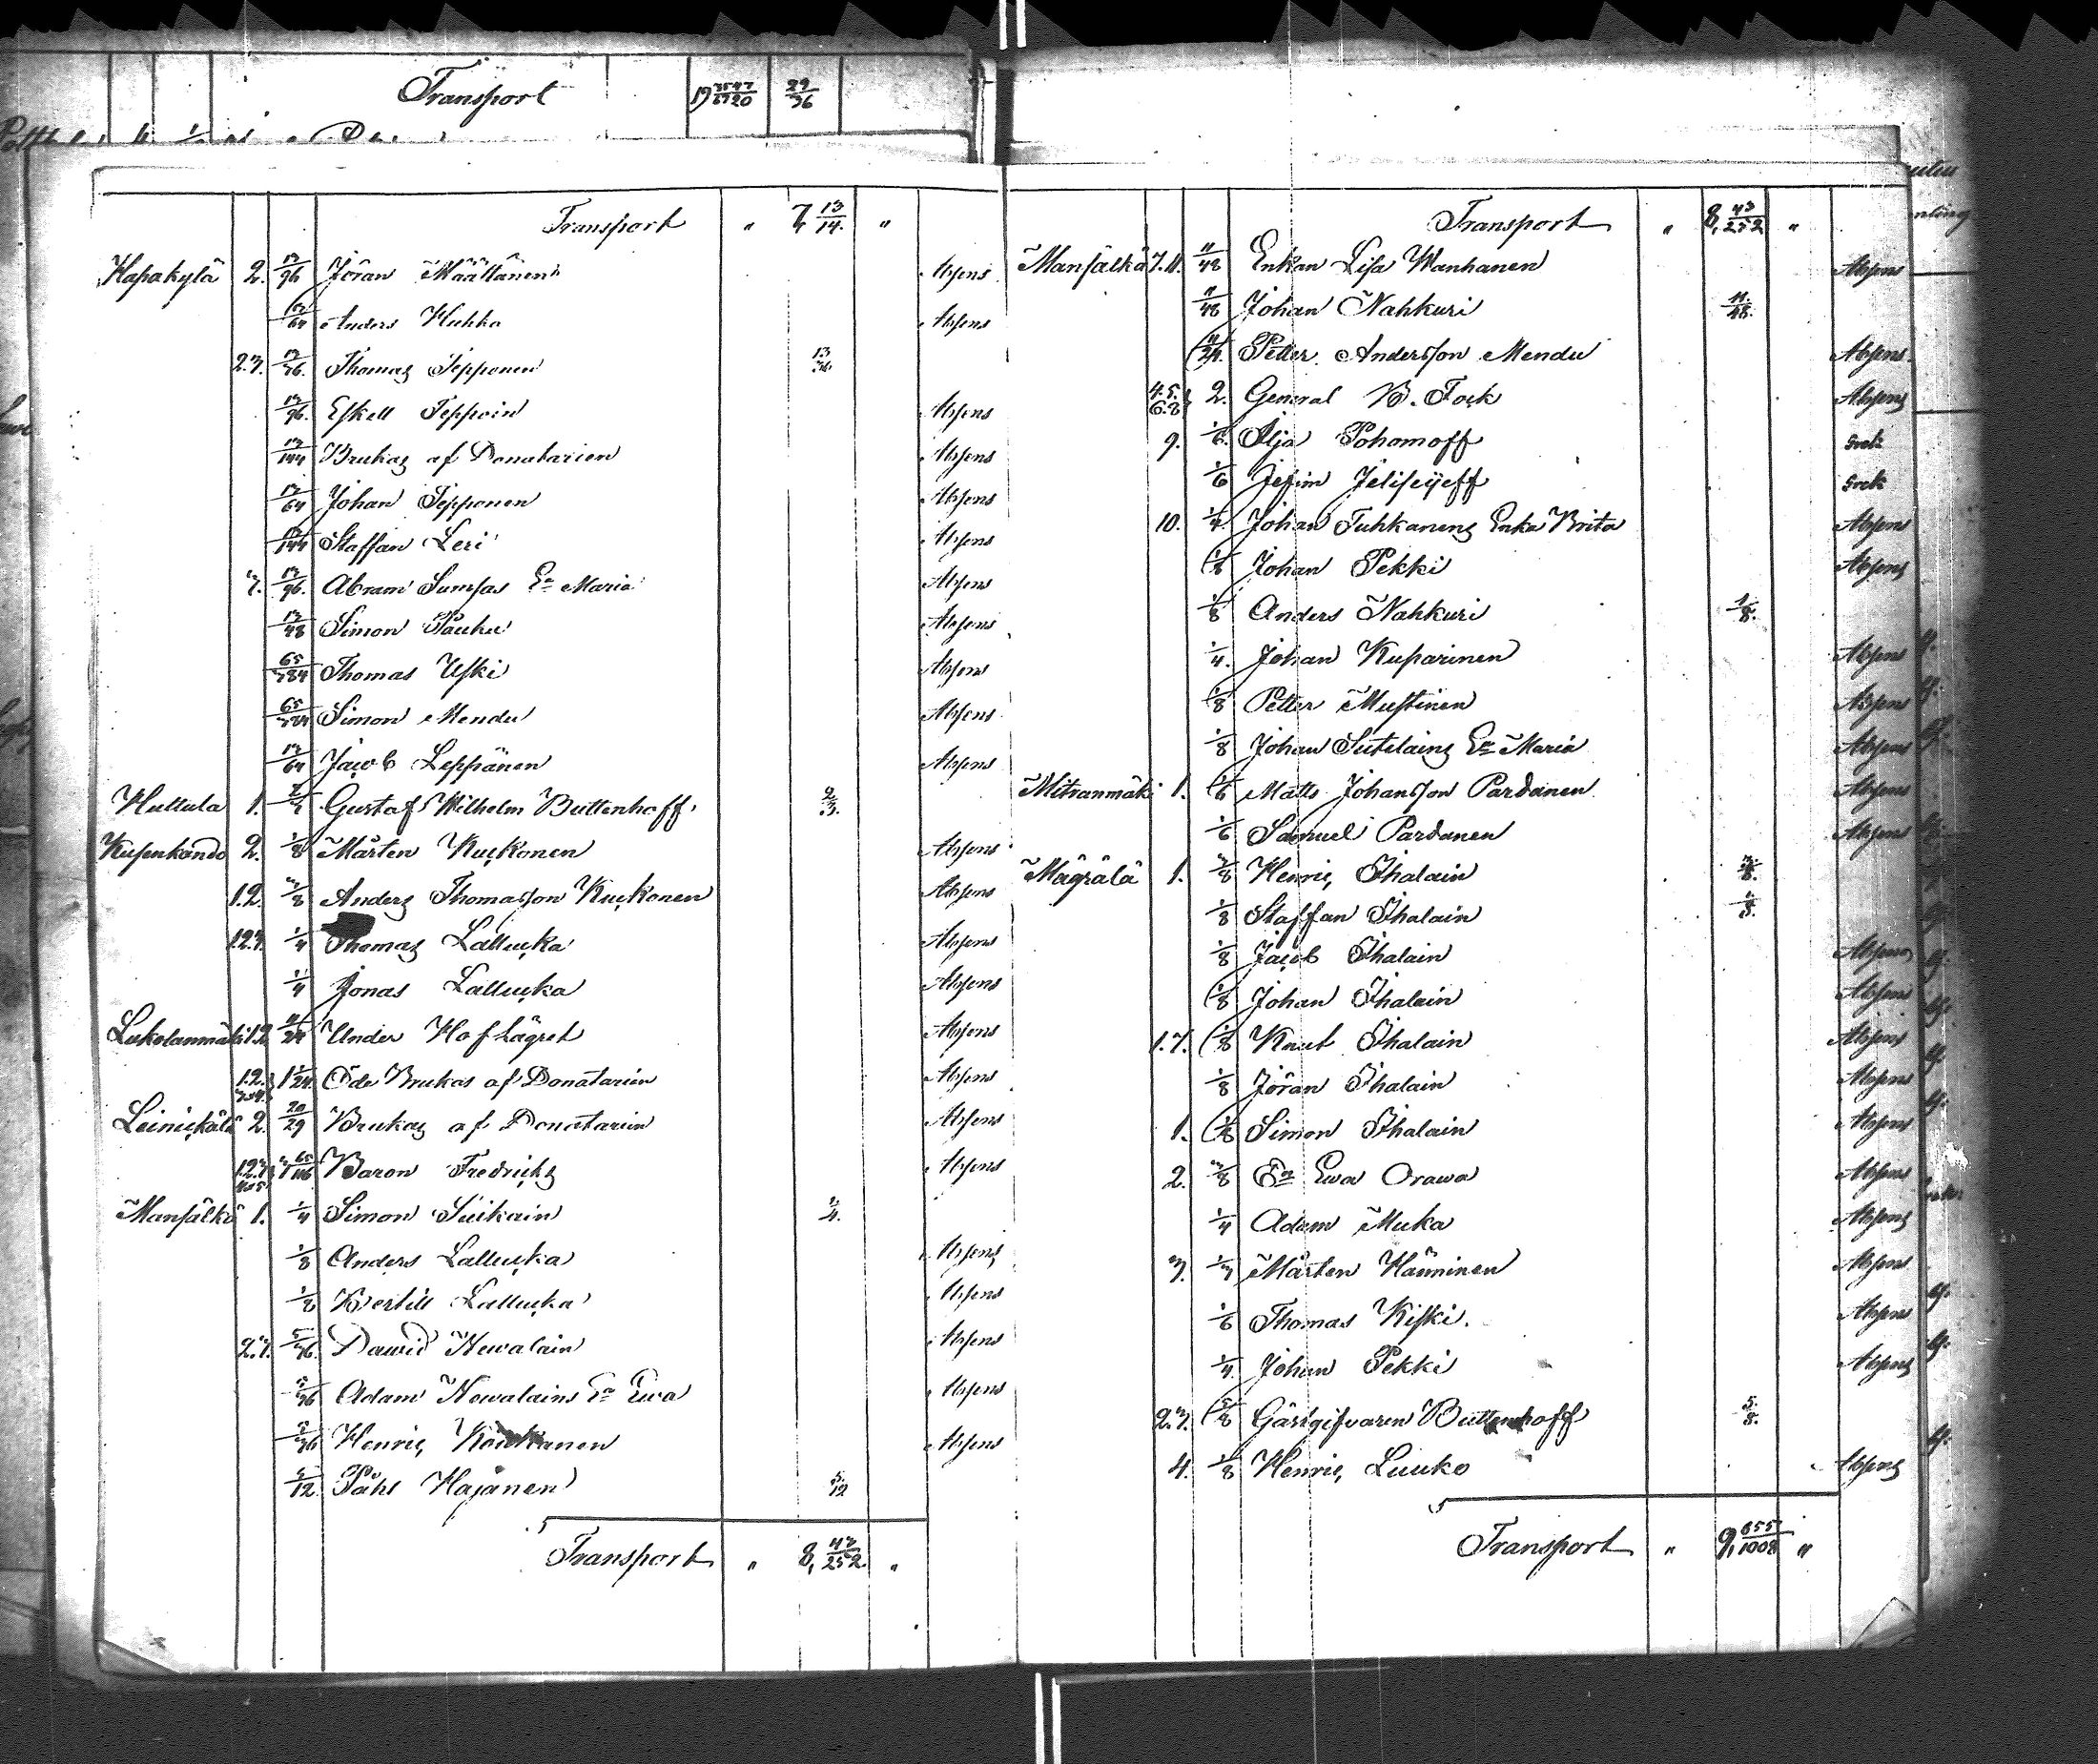 Transport 19 3547/6720 29/36
Transport " 7 13/14. "
Hapakylä 2. 13/96 Jöran Määttänen Absens
13/64 Anders Huhka Absens
2.3. 13/36. Thomas Sepponen 13/36
13/96. Eskell Seppoin Absens
13/144 Brukas af Donatarien Absens
13/64 Johan Sepponen Absens
13/144 Staffan Leri Absens
3. 13/96. Abram Sumpas En Maria Absens
13/48 Simon Pauku Absens
65/384 Thomas Uski Absens
65/384 Simon Mendu Absens
13/64 Jacob Leppänen Absens
Huttula 1. 2/3 Gustaf Wilhelm Buttenhoff 2/3.
Kusenkando 2. 1/8 Mårten Kuckonen Absens
1.2. 3/8 Anders Thomasson Kuckonen Absens
1.2.3. 1/4 Thomas Lallucka Absens
1/4 Jonas Lallucka Absens
Lukolanmäki 1.2 11/24 Under Hoflägret Absens
1.2. 3.4. 1 1/24 Öde Brukas af Donatarien Absens
Leinickälä 2. 20/29 Brukas af Donatarien Absens
1.2.3. 4.5. 3 65/116 Baron Fredricks Absens
Mansälkä 1. 1/4 Simon Suikain 1/4.
1/8 Anders Lallucka Absens
1/8 Bertill Lallucka Absens
2.3. 5/36. David Newalain Absens
5/36 Adam Newalains En Ewa Absens
5/36 Henric Absens
5/12. Påhl Hajänen 5/12
Transport " 8, 43/252. "
Transport " 8, 43/252 "
Mansälkä 3.11. 11/48 Enkan Lisa Wanhanen Absens
11/48 Johan Nahkuri 11/48.
11/24. Petter Andersson Mendu Absens
4.5. 6.8 2. General B. Fock Absens
9. 1/6. Ilja Pohomoff Grek
1/6 Jefim Jelisejeff Grek
10. 1/4 Johan Tuhkanens Enka Brita Absens
1/8 Johan Pekki Absens
1/8 Anders Nahkuri 1/8.
1/4. Johan Kuparinen Absens
1/8 Petter Mustinen Absens
1/8 Johan Sutelains En Maria Absens
Mitranmäki 1. 1/6 Matts Johansson Pardanen Absens
1/6 Samuel Pardanen Absens
Mägrälä 1. 3/8 Henric Ihalain 3/8.
1/8 Staffan Ihalain 1/8.
1/8 Jacob Ihalain Absens
1/8 Johan Ihalain Absens
1.3. 1/8 Knut Ihalain Absens
1/8 Jöran Ihalain Absens
1. 1/8 Simon Ihalain Absens
2. 3/8 En Ewa Orawa Absens
1/4 Adam Muka Absens
3. 1/3 Mårten Hänninen Absens
1/6 Thomas Kiski. Absens
1/4 Johan Pekki Absens
2.3. 5/8 Gästgifvaren Buttenhoff 5/8.
4. 1/8 Henric Luuko Absens
Transport " 9, 655/1008 "